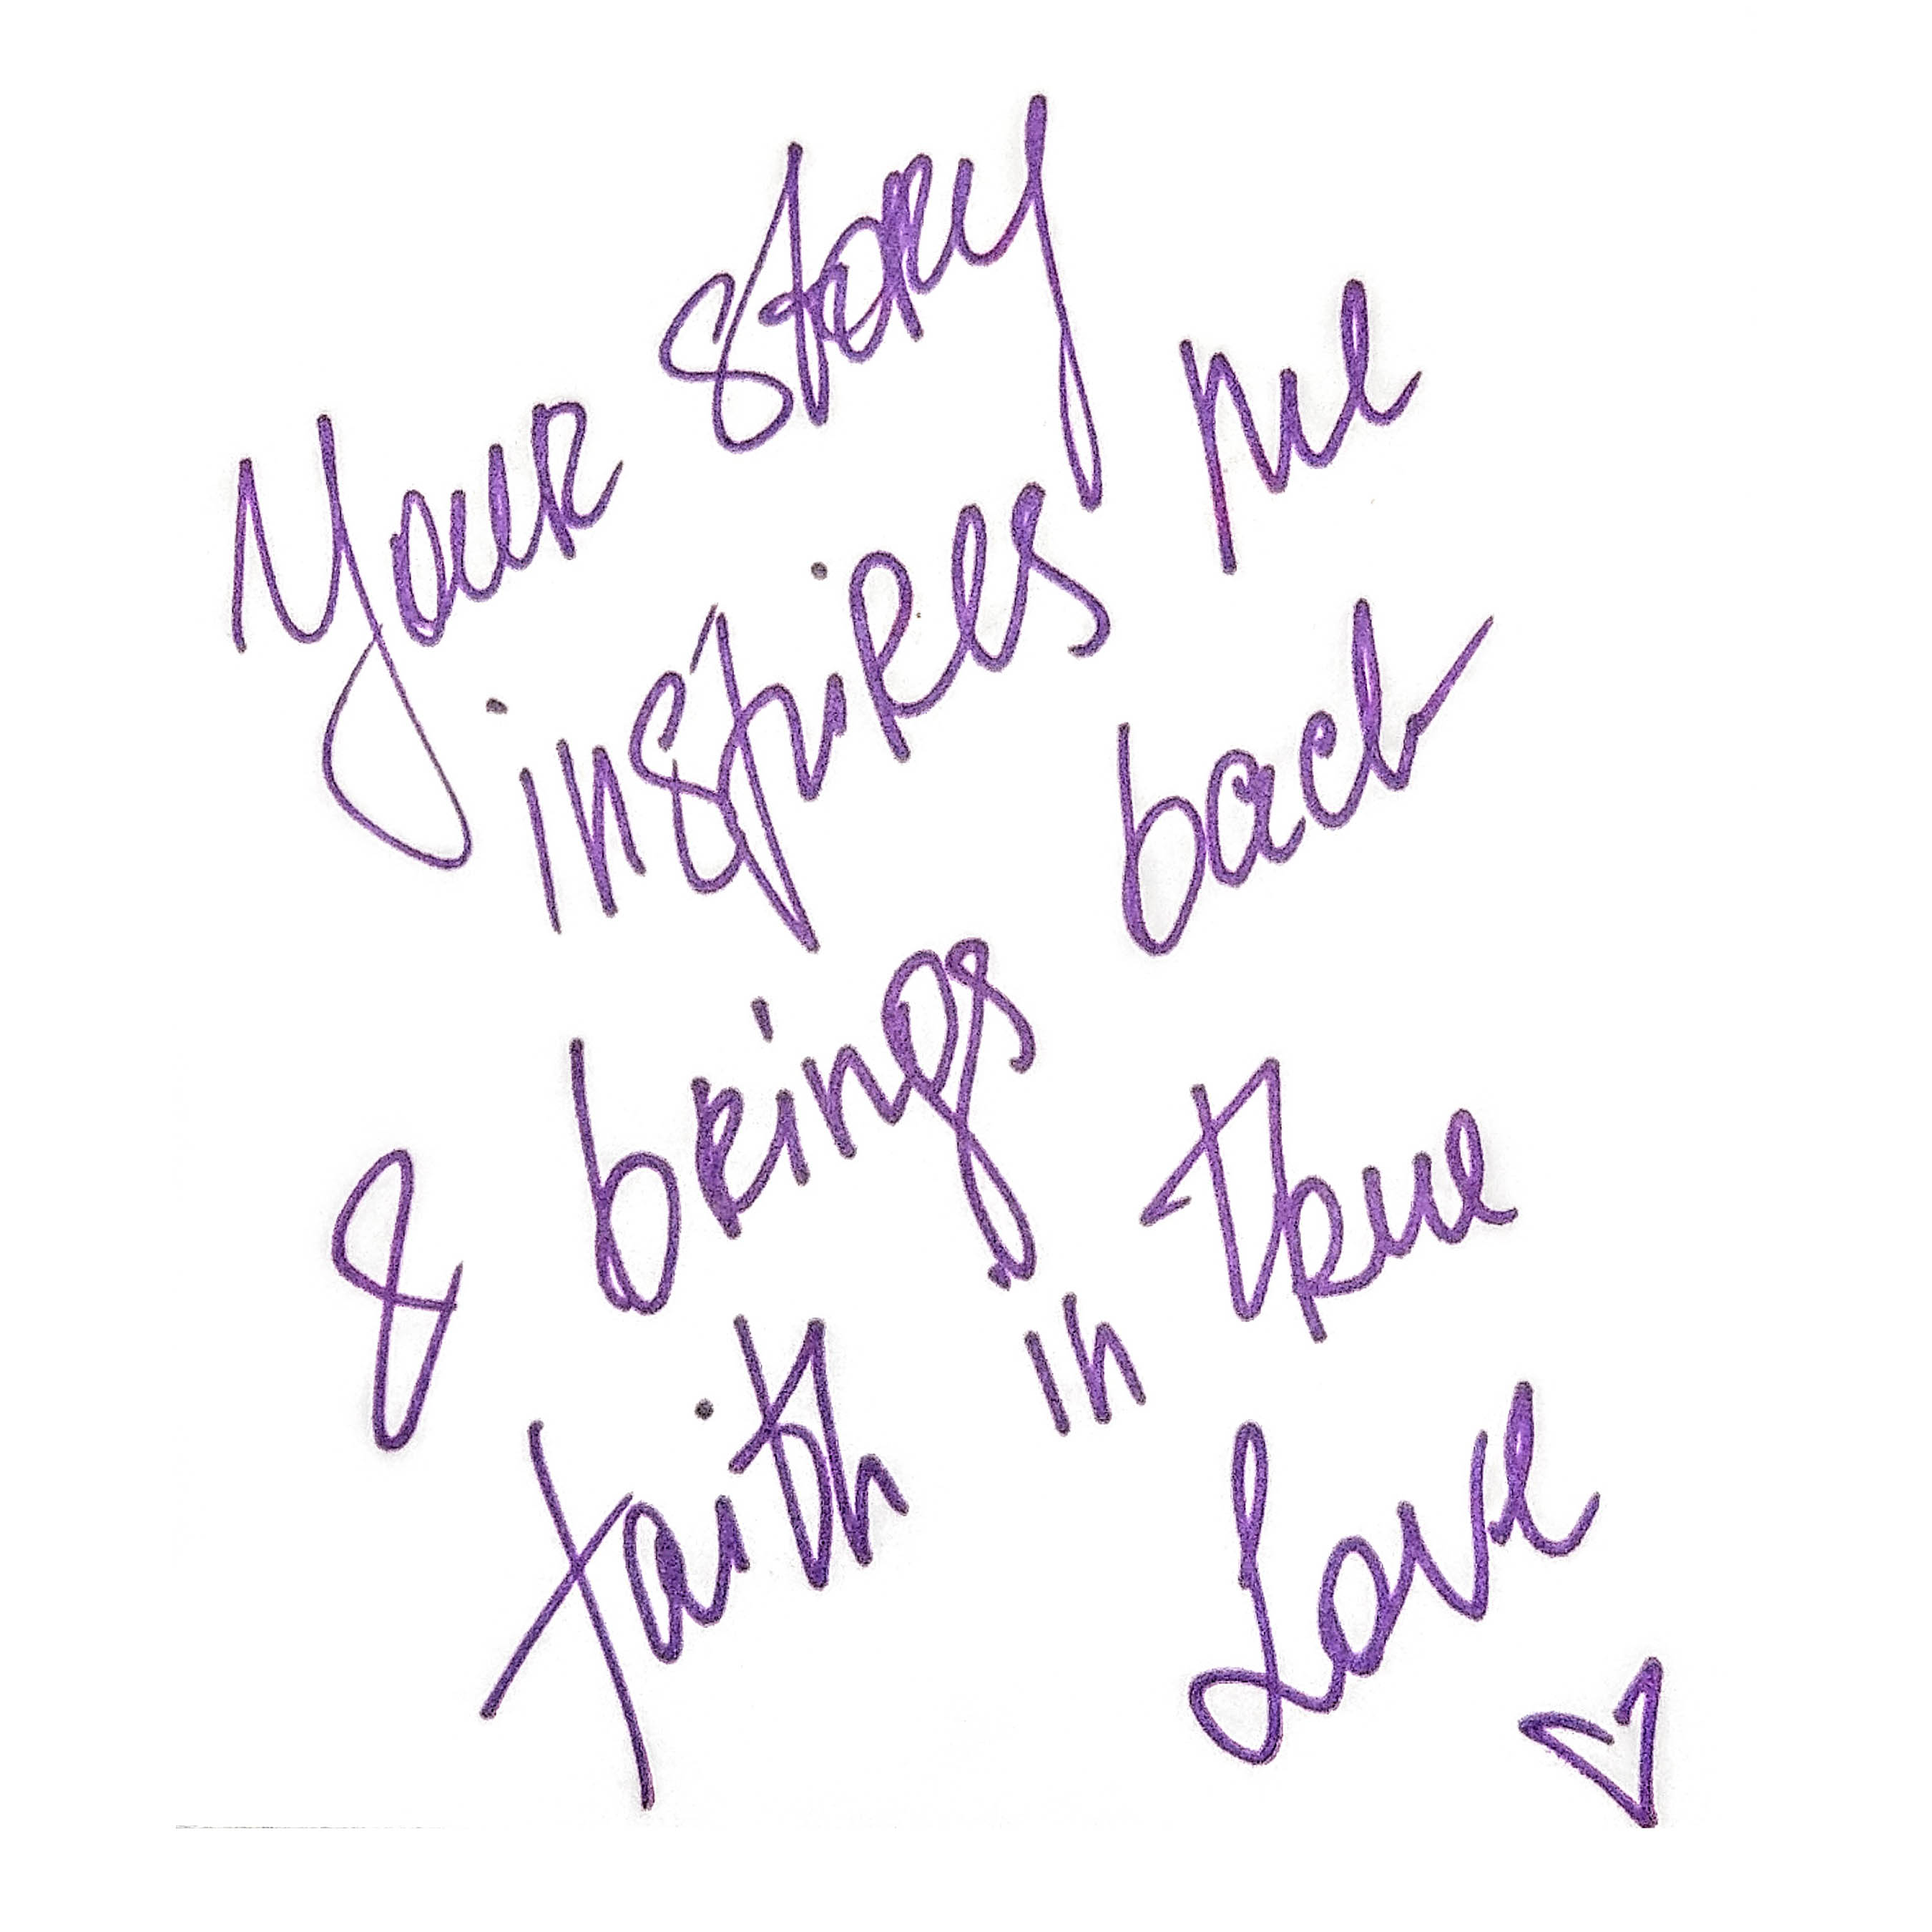 Your story
inspires me
& brings back
faith in true
Love